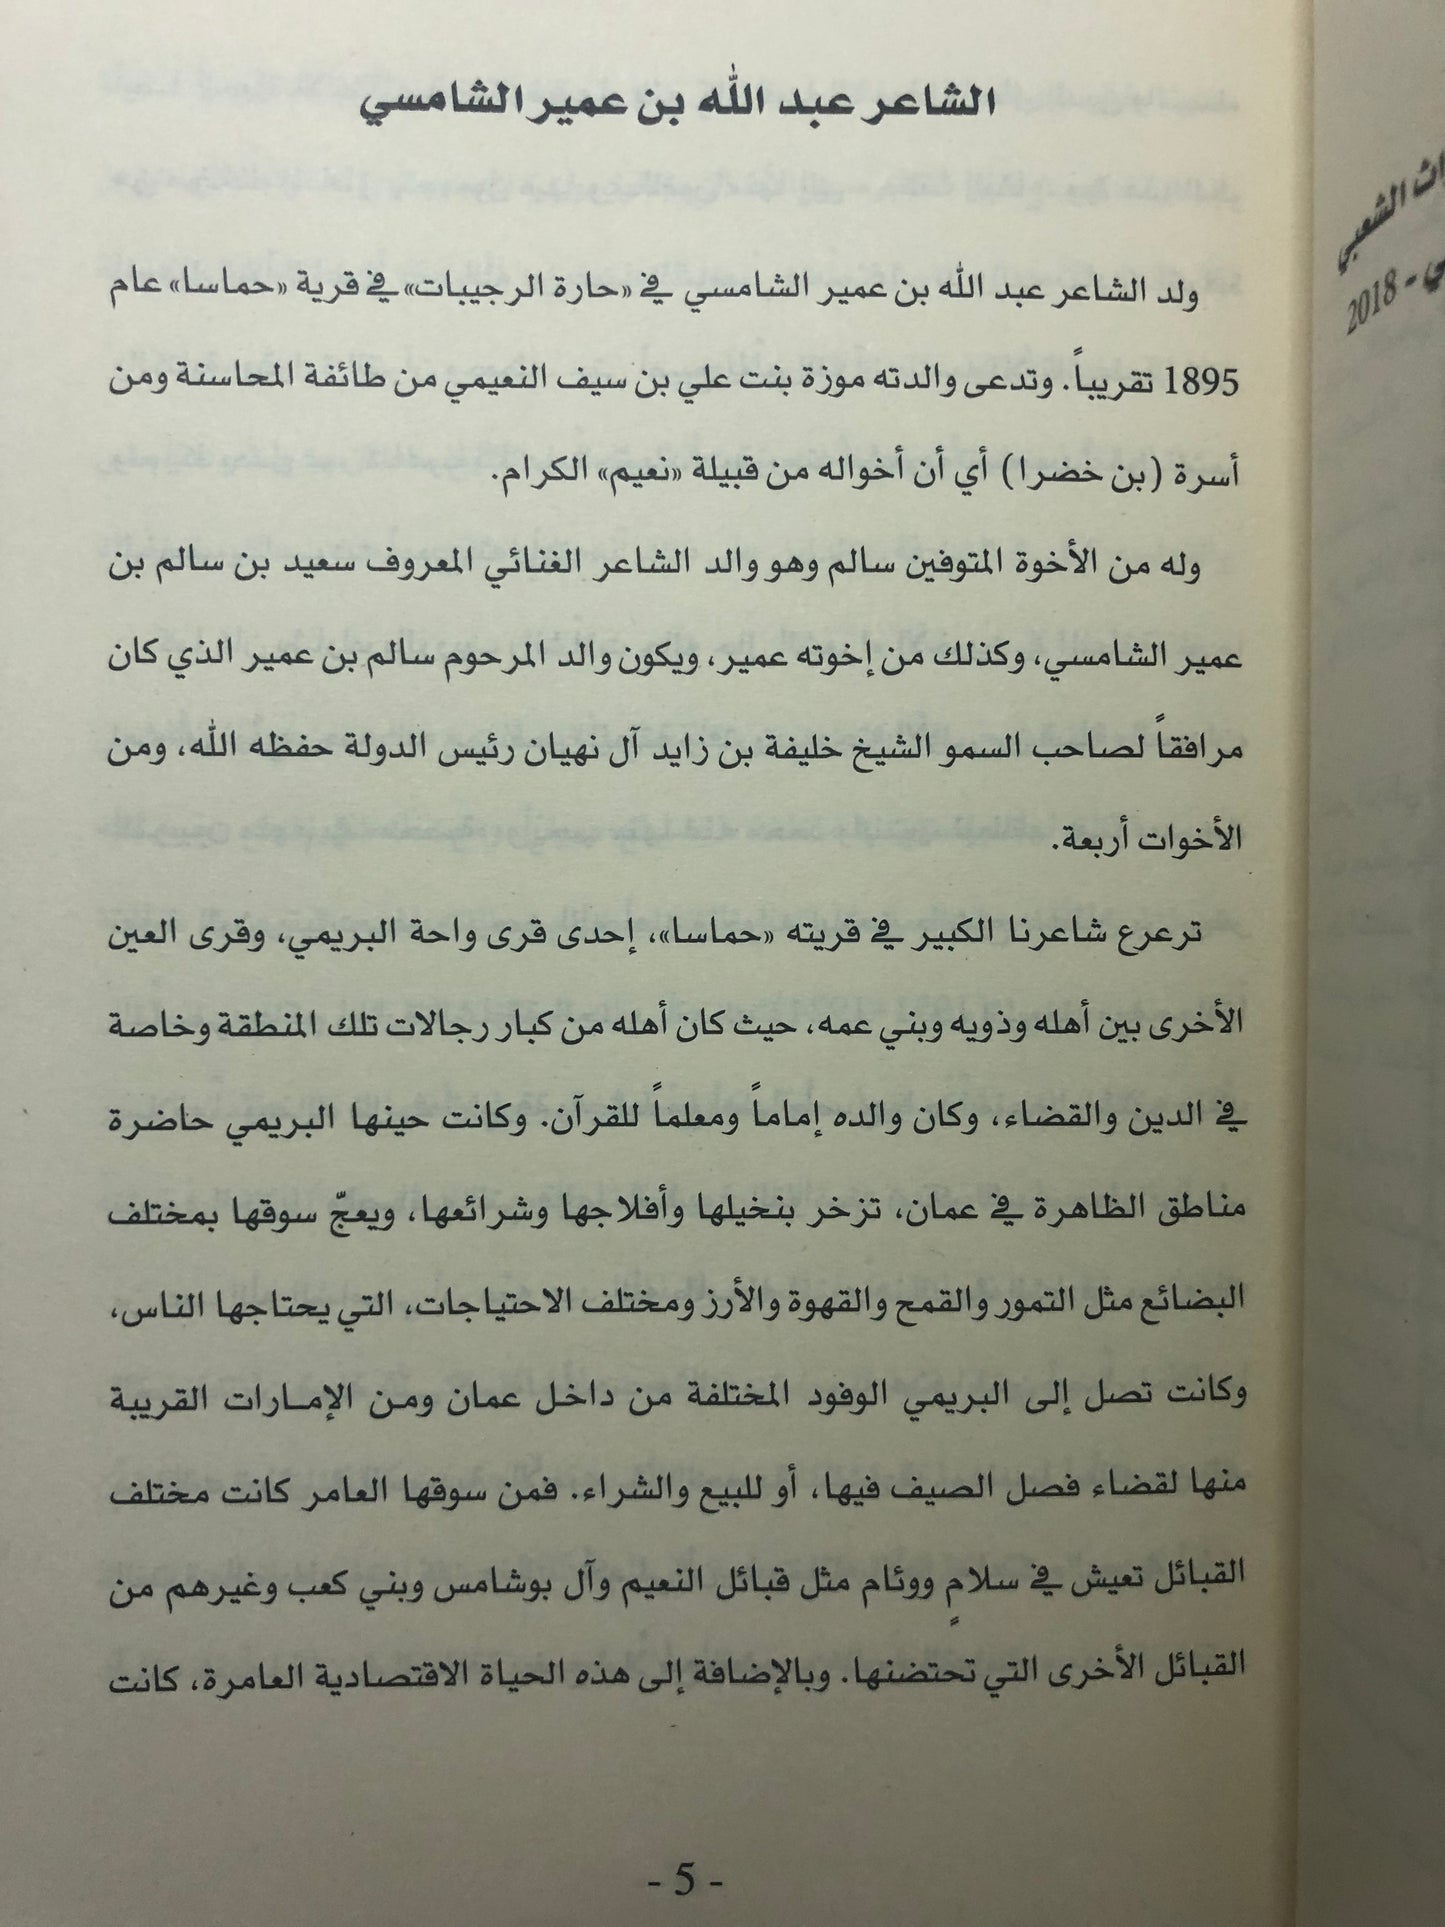 الشاعر عبد الله بن عمير الشامسي
ولد الشاعر عبد الله بن عمير الشامسي في «حارة الرجيبات» في قرية «حماسا» عام
1895 تقريباً. وتدعى والدته موزة بنت علي بن سيف النعيمي من طائفة المحاسنة ومن
أسرة (بن خضرا) أي أن أخواله من قبيلة «نعيم» الكرام.
وله من الأخوة المتوفين سالم وهو والد الشاعر الغنائي المعروف سعيد بن سالم بن
عمير الشامسي، وكذلك من إخوته عمير، ويكون والد المرحوم سالم بن عمير الذي كان
مرافقاً لصاحب السمو الشيخ خليفة بن زايد آل نهيان رئيس الدولة حفظه الله، ومن
الأخوات أربعة.
ترعرع شاعرنا الكبير في قريته «حماسا»، إحدى قرى واحة البريمي، وقرى العين
الأخرى بين أهله وذويه وبني عمه، حيث كان أهله من كبار رجالات تلك المنطقة وخاصة
في الدين والقضاء، وكان والده إماماً ومعلماً للقرآن. وكانت حينها البريمي حاضرة
مناطق الظاهرة في عمان، تزخر بنخيلها وأفلاجها وشرائعها، ويعجّ سوقها بمختلف
البضائع مثل التمور والقمح والقهوة والأرز ومختلف الاحتياجات، التي يحتاجها الناس،
وكانت تصل إلى البريمي الوفود المختلفة من داخل عمان ومن الإمارات القريبة
منها لقضاء فصل الصيف فيها، أو للبيع والشراء. فمن سوقها العامر كانت مختلف
القبائل تعيش في سلامٍ ووئام مثل قبائل النعيم وآل بوشامس وبني كعب وغيرهم من
القبائل الأخرى التي تحتضنها. وبالإضافة إلى هذه الحياة الاقتصادية العامرة، كانت
- 5 -
الشعبي
- 2018